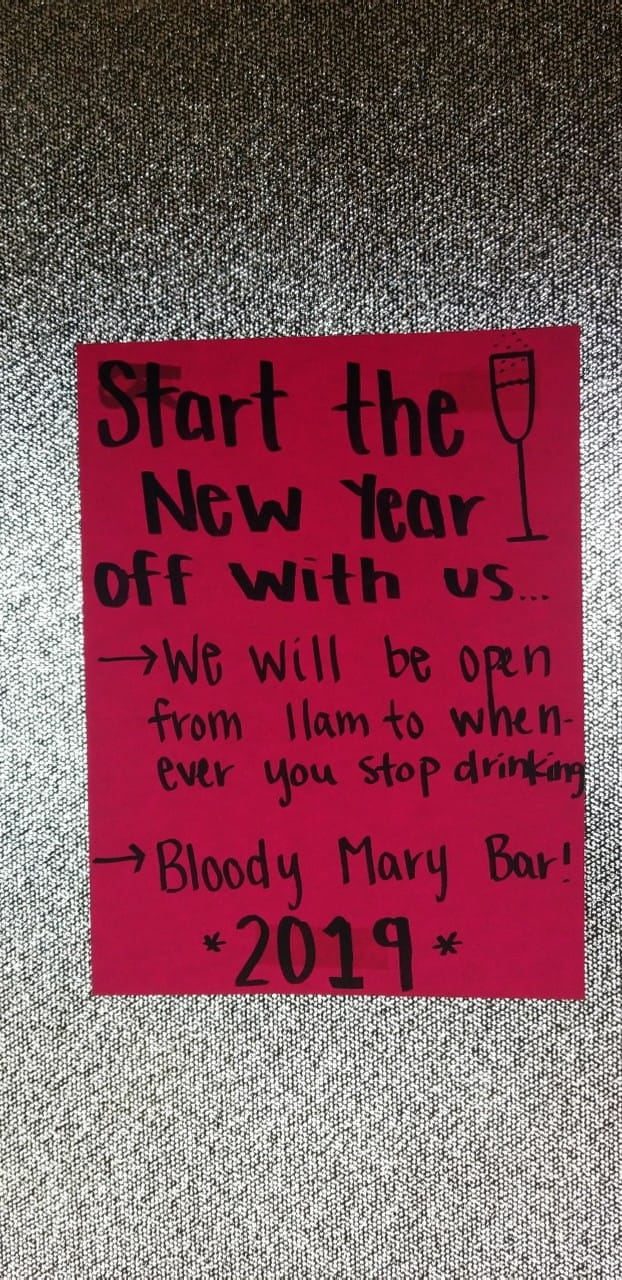 Start the
New Year
off with us...
→We will be open
from 11am to when-
ever you stop drinking
→Bloody Mary Bar!
*2019*